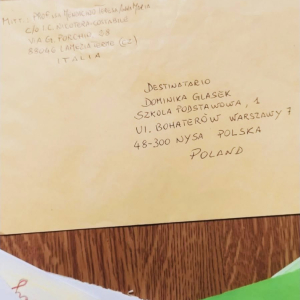 MITT: PROF.
C/O I.C.
VIA G. PUCCINI
ITALIA
DESTINATARIO
DOMINIKA GLASEK
SZKOLA PODSTAWOWA, 1
Ul. BOHATERÓW WARSZAWY 7
48-300 NYSA POLSKA
POLAND